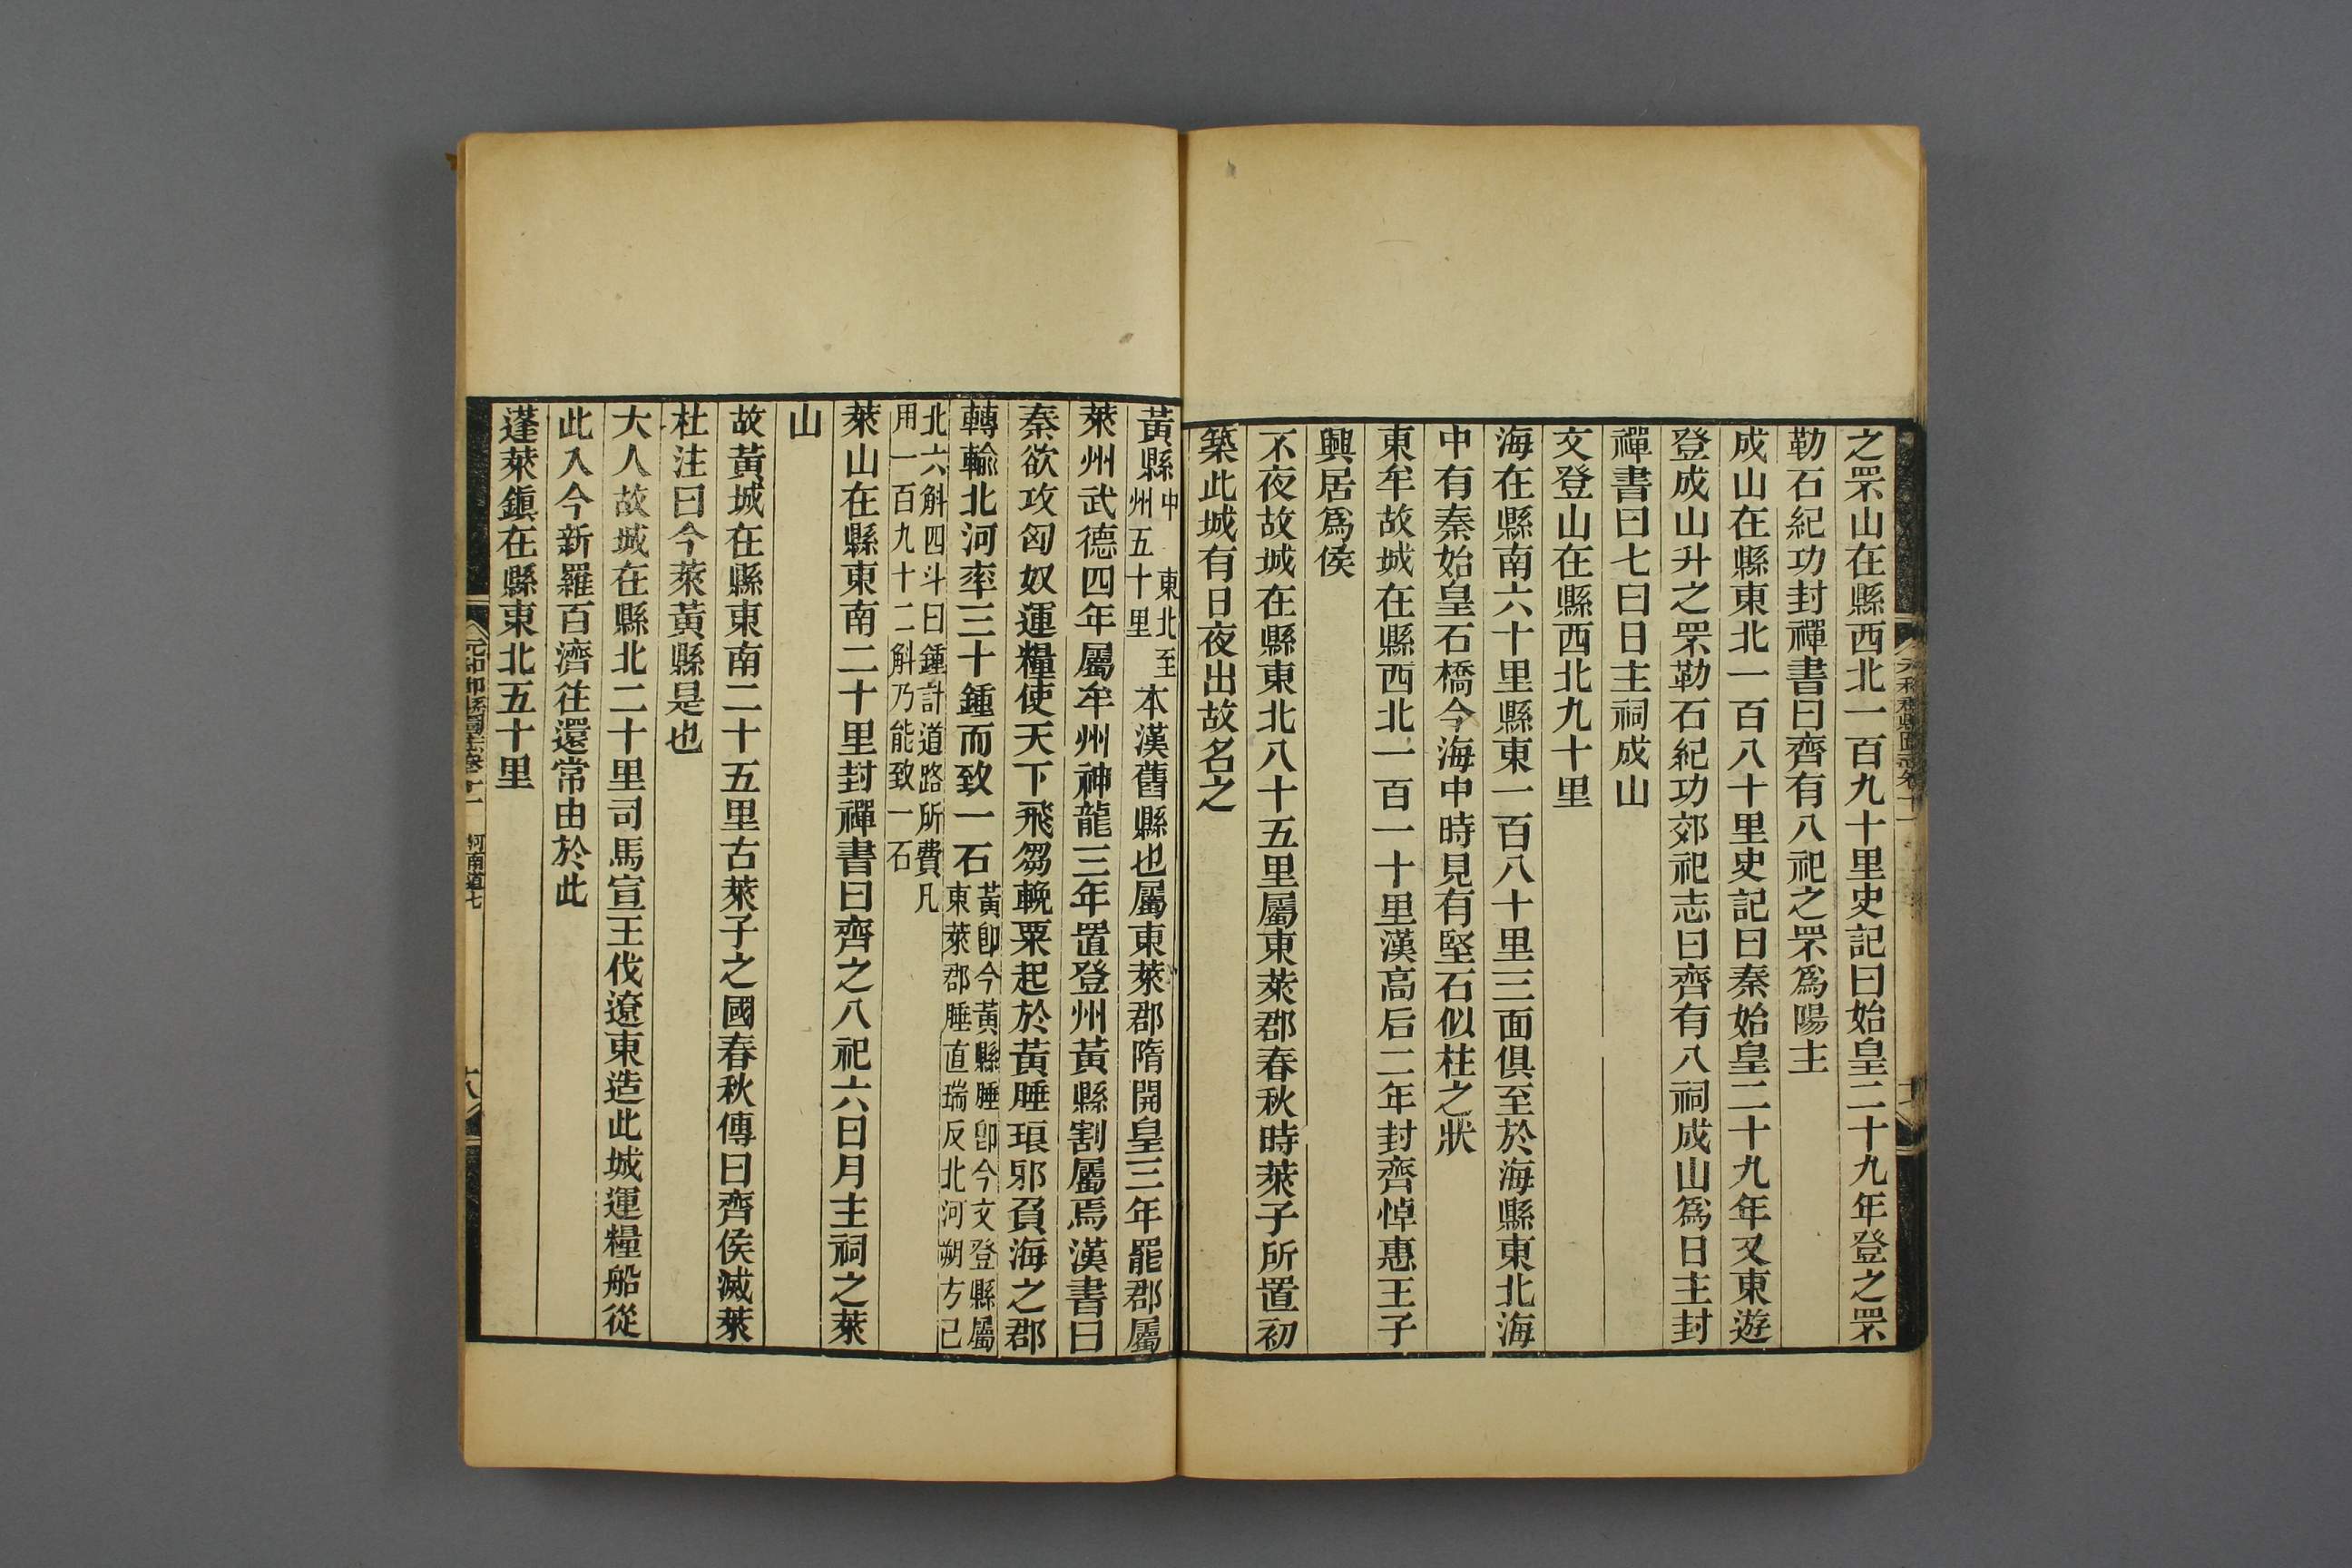 之罘山在縣西北一百九十里史記曰始皇二十九年登之罘
勒石紀功封禪書曰齊有八祀之罘爲陽主
成山在縣東北一百八十里史記曰秦始皇二十九年又東遊
登成山升之罘勒石紀功郊祀志曰齊有八祠成山爲日主封
禪書曰七曰日主祠成山
文登山在縣西北九十里
海在縣南六十里縣東一百八十里三面俱至於海縣東北海
中有秦始皇石橋今海中時見有堅石似柱之狀
東牟故城在縣西北一百一十里漢高后二年封齊悼惠王子
興居爲侯
不夜故城在縣東北八十五里屬東萊郡春秋時萊子所置初
築此城有日夜出故名之
黃縣中 東北至州五十里 本漢舊縣也屬東萊郡隋開皇三年罷郡屬
萊州武德四年屬牟州神龍三年置登州黃縣割屬焉漢書曰
秦欲攻匈奴運糧使天下飛芻輓粟起於黃腄琅邪負海之郡
轉輸北河率三十鍾而致一石黃卽今黃縣腄卽今文登縣屬東萊郡腄直瑞反北河朔方已
北六斛四斗曰鍾計道路所費凡用一百九十二斛乃能致一石
萊山在縣東南二十里封禪書曰齊之八祀六曰月主祠之萊
山
故黃城在縣東南二十五里古萊子之國春秋傳曰齊侯滅萊
杜注曰今萊黃縣是也
大人故城在縣北二十里司馬宣王伐遼東造此城運糧船從
此入今新羅百濟往還常由於此
蓬萊鎭在縣東北五十里
元和郡縣圖志卷十一 河南道七
十八